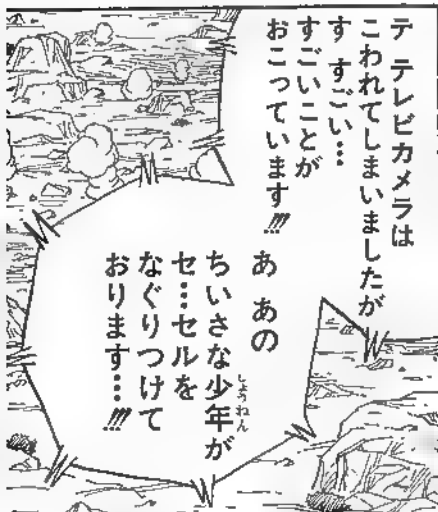 テ テレビカメラは
こわれてしまいましたが
す すごい…
すごいことが
おこっています!!!
あ あの
ちいさな少年が
しょうねん
セ…セルを
なぐりつけて
おります…!!!